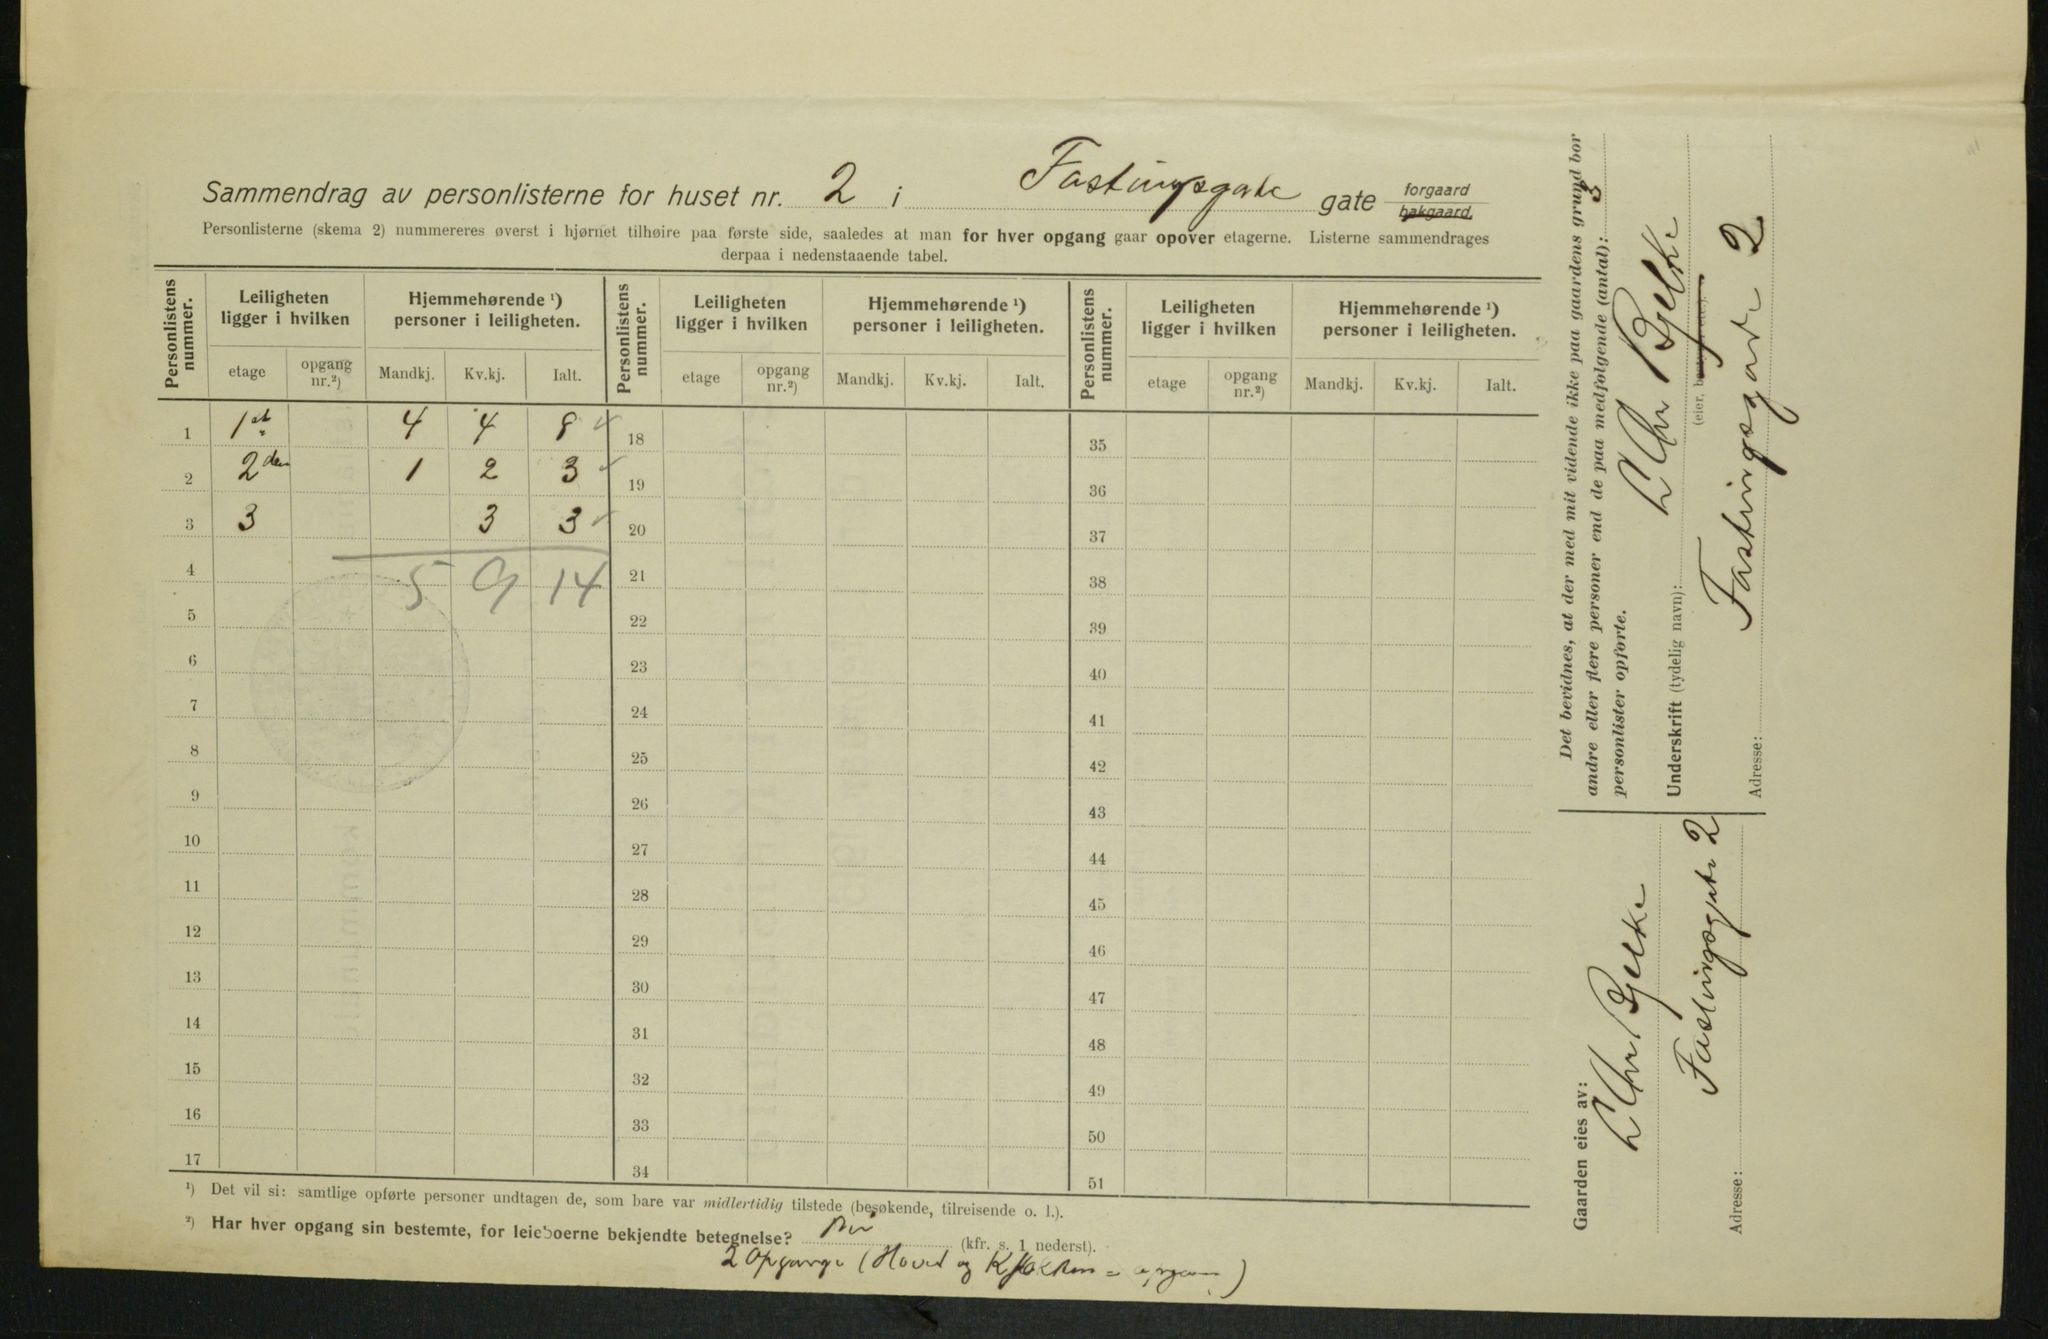 Sammendrag av personlisterne for huset nr. 2 i Fastingsgate gate forgaard bakgaard.
Personlisterne (skema 2) nummereres øverst i hjørnet tilhøire paa første side, saaledes at man for hver opgang gaar opover etagerne. Listerne sammendrages
derpaa i nedenstaaende tabel.
Personlistens nummer. Leiligheten ligger i hvilken Hjemmehørende ¹) personer i leiligheten. Personlistens nummer. Leiligheten ligger i hvilken Hjemmehørende ¹) personer i leiligheten. Personlistens nummer. Leiligheten ligger i hvilken Hjemmehørende ¹) personer i leiligheten.
etage opgang nr.²) Mandkj. Kv.kj. Ialt. etage opgang nr.²) Mandkj. Kv.kj. Ialt. etage opgang nr.²) Mandkj. Kv.kj. Ialt.
1 1st 4 4 8 18 35
2 2den 1 2 3 19 36
3 3 3 3 20 37
4 5 9 14 21 38
5 22 39
6 23 40
7 24 41
8 25 42
9 26 43
10 27 44
11 28 45
12 29 46
13 30 47
14 31 48
15 32 49
16 33 50
17 34 51
¹) Det vil si: samtlige opførte personer undtagen de, som bare var midlertidig tilstede (besøkende, tilreisende o. l.).
²) Har hver opgang sin bestemte, for leieboerne bekjendte betegnelse? (kfr. s. 1 nederst).
2 Opgange (Hoved og
Det bevidnes, at der med mit vidende ikke paa gaardens grund bor
andre eller flere personer end de paa medfølgende (antal): 3
personlister opførte.
Underskrift (tydelig navn): Chr Bjelke
(eier,
Adresse: Fastingsgate 2
Gaarden eies av:
Chr Bjelke
Adresse: Fastingsgate 2